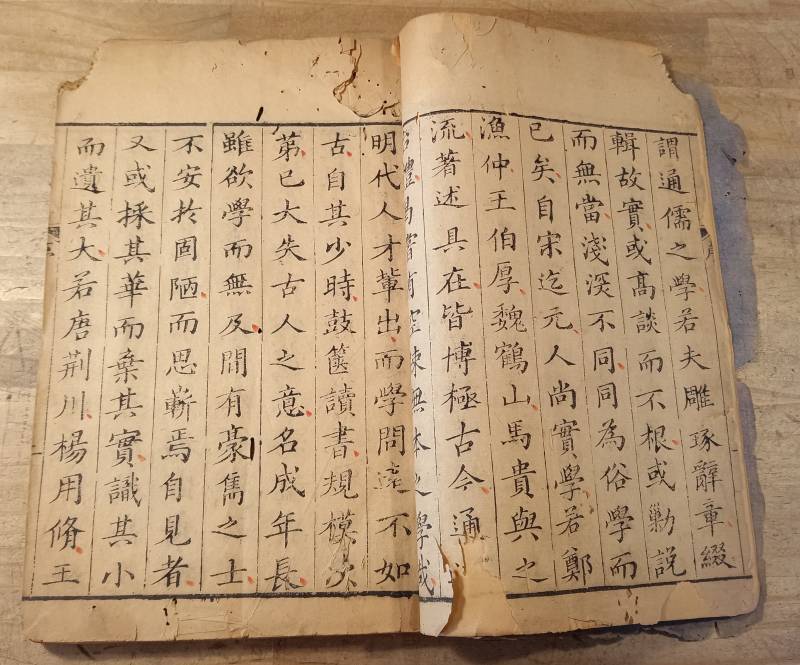 謂通儒之學若夫雕琢辭章綴
輯故實或高談而不根或勦説
而無當淺深不同同為俗學而
已矣自宋迄元人尚實學若鄭
漁仲王伯厚魏鶴山馬貴與之
流著述具在皆博極古今通
體曷嘗有空疎無本之學哉
明代人才輩出而學問遠不如
古自其少時鼓篋讀書規模次
第已大失古人之意名成年長
雖欲學而無及間有豪雋之士
不安於固陋而思嶄焉自見者
又或採其華而棄其實識其小
而遺其大若唐荆川楊用脩王